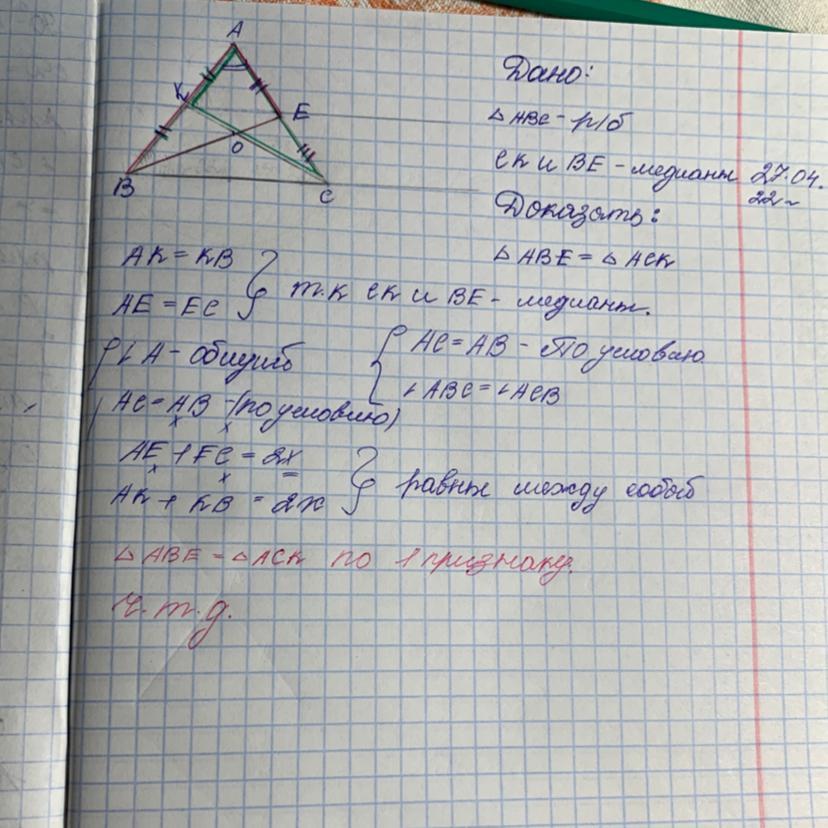 A
K
E
O
B
C
Дано:
△ABC - р/б
CK и BE - медианы
27.04.
22 г
Доказать:
△ABE = △ACK
AK = KB
AE = EC
т.к CK и BE - медианы.
∠A - общий
AC = AB - (по условию)
AC = AB - По условию
∠ABC = ∠ACB
x x
AE + EC = 2x
x x
AK + KB = 2x
равны между собой
△ABE = △ACK по 1 признаку.
ч.т.д.